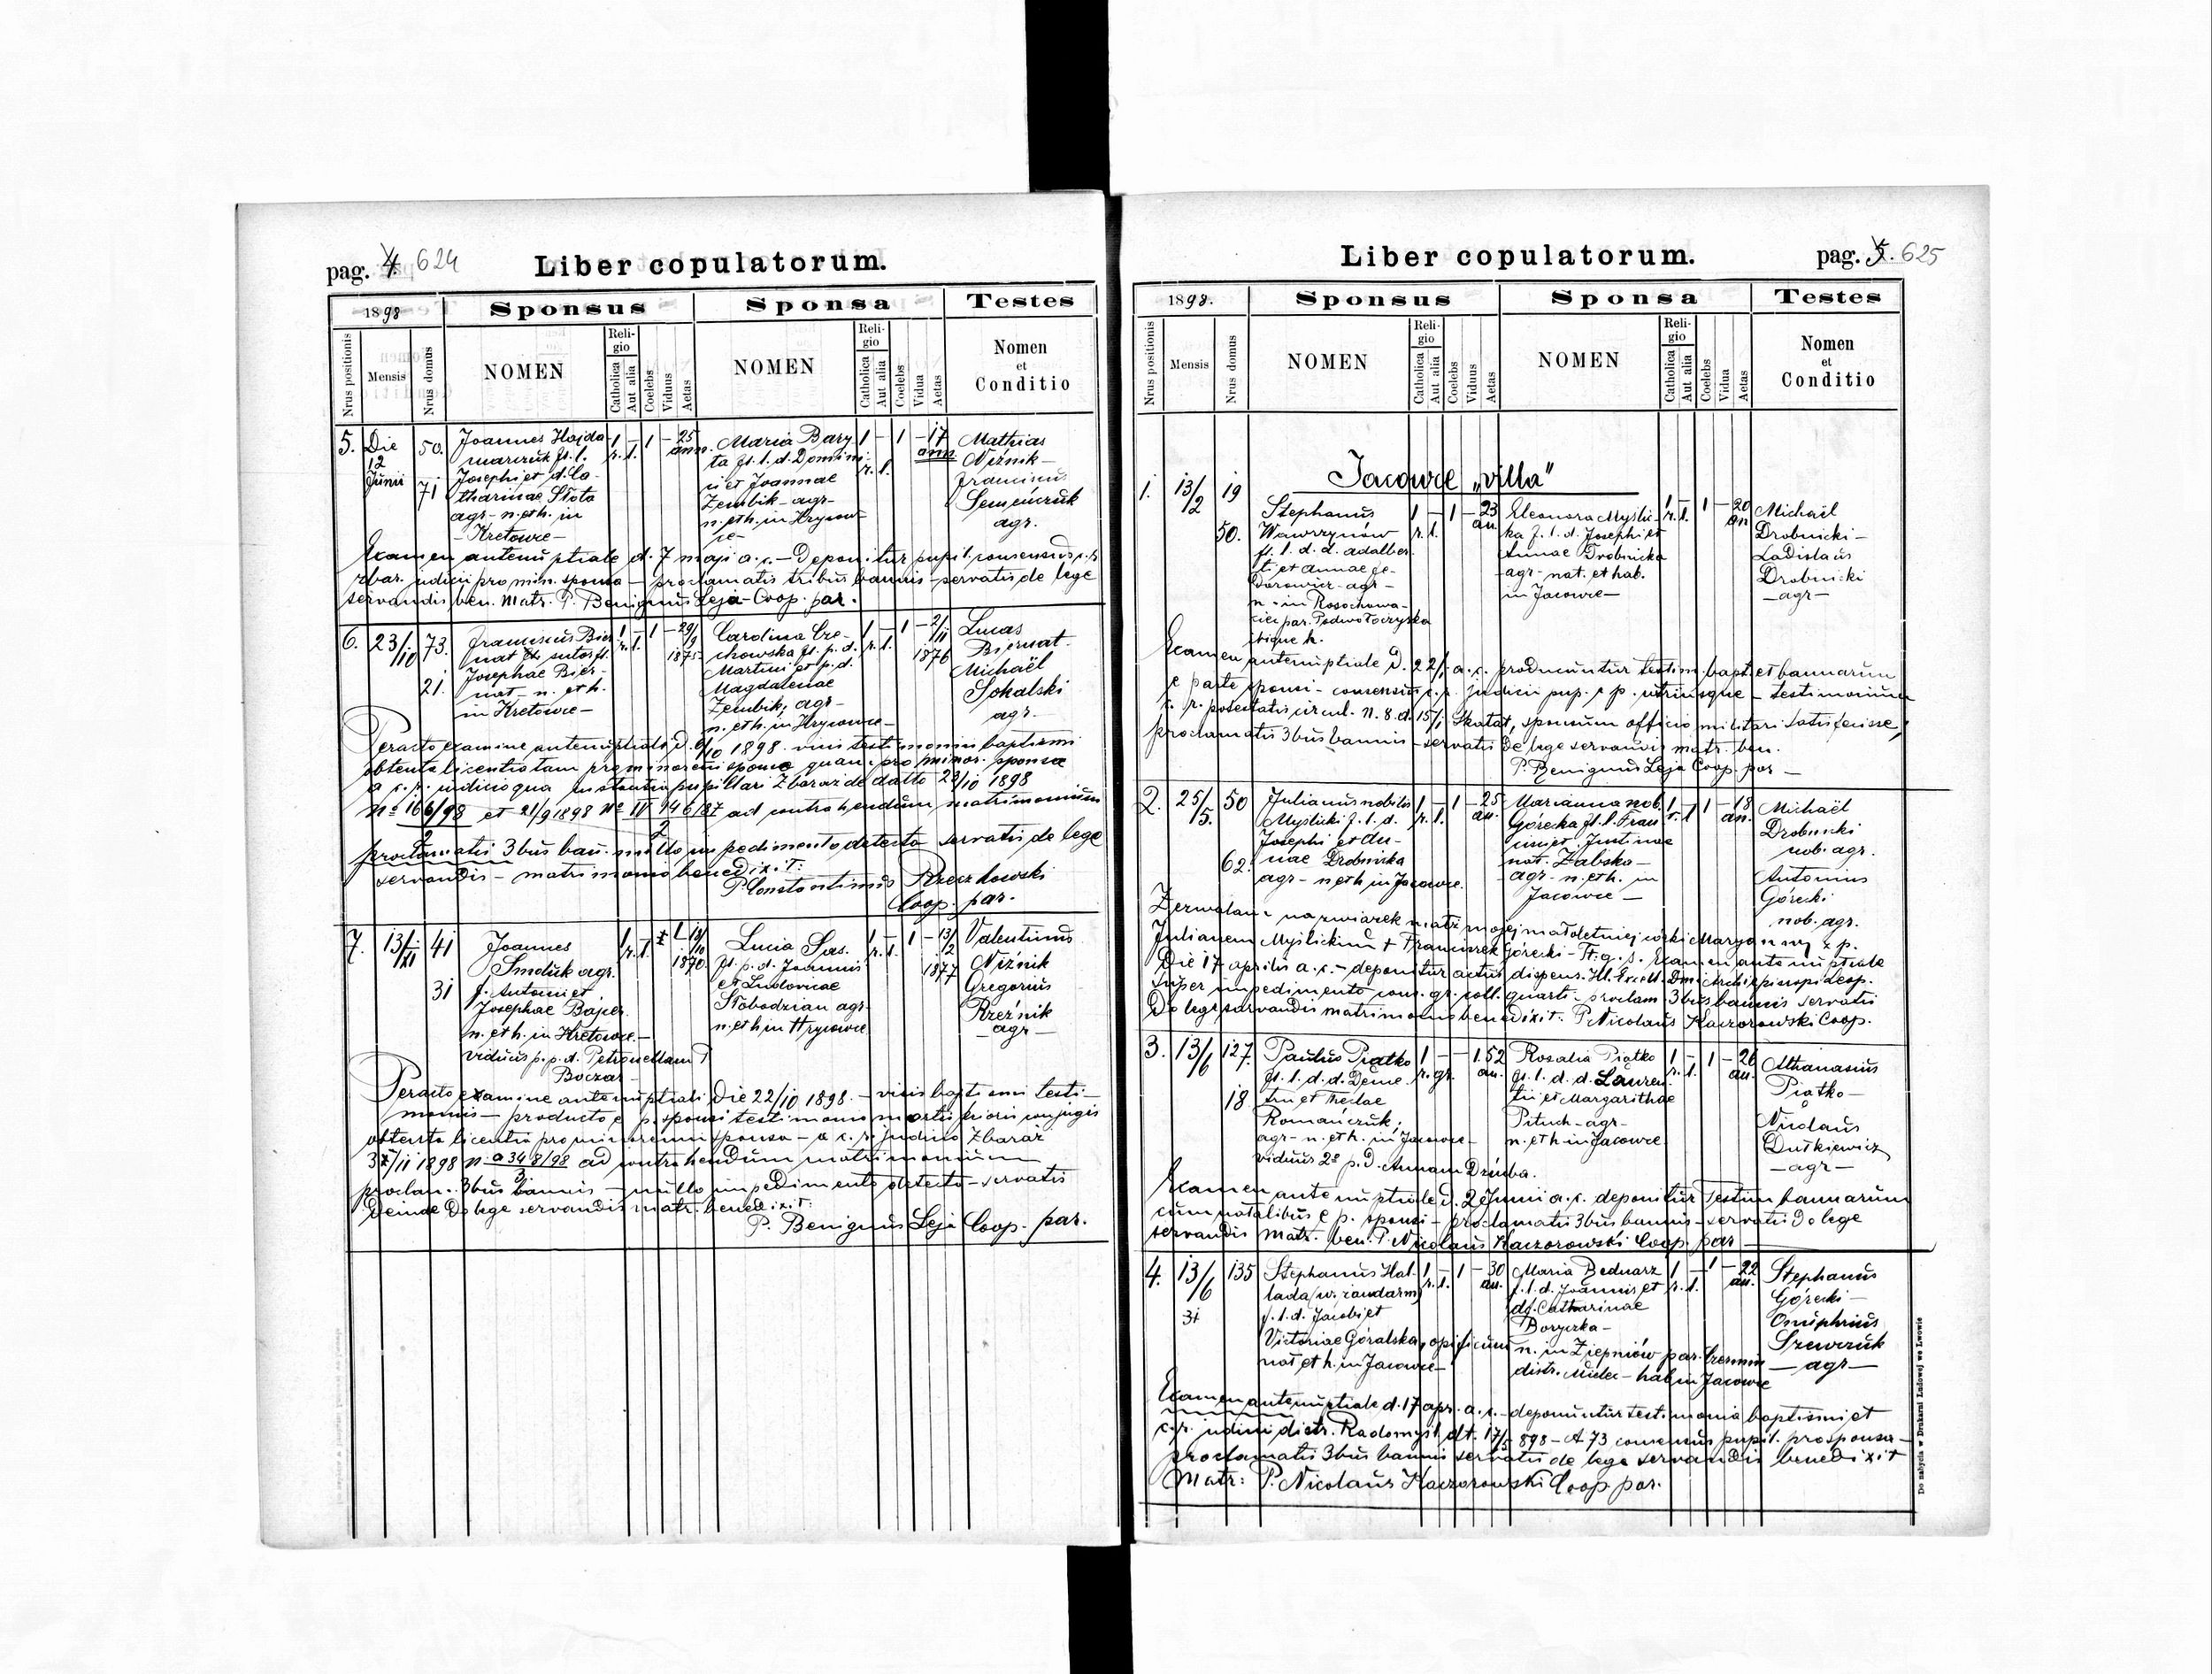 pag. 4. 624
Liber copulatorum.
1898
Sponsus
Sponsa
Testes
Nrus positionis
Mensis
Nrus domus
NOMEN
Religio
Catholica
Aut alia
Coelebs
Viduus
Aetas
NOMEN
Religio
Catholica
Aut alia
Coelebs
Vidua
Aetas
Nomen
et
Conditio
5. Die 12 Junii
50.
71
Joannes Hajda-
marczuk fs. l.
Josephi et d. Ca-
tharinae Słota
agr - n. et h. in
Kretowce -
1 r. l. - 1 - 25 ann.
Maria Bary-
ta fs. l. d. Domini-
ci et Joannae
Zembik - agr -
n. et h. in Hrycow-
ce -
1 r. l. - 1 - 17 ann.
Mathias
Niźnik -
Franciscus
Semeńczuk
agr.
Examen antenuptiale d. 7 maji a. c. - Deponitur pupil. consensus c. r.
zbar. judicii pro min. sponsa - proclamatis tribus bannis - servatis de lege
servandis ben. matr. P. Benignus Leja - Coop. par.
6. 23/10 73.
21.
Franciscus Bier-
nat
Josephae Bier-
nat - n. et h.
in Kretowce -
1 r. l. - 1 - 29/9 1875
Carolina Cze-
chowska fs. p. d.
Martini et p. d.
Magdalenae
Zembik, agr -
n. et h. in Hrycowce -
1 r. l. - 1 - 2/11 1876
Lucas
Biernat.
Michaël
Sokalski
agr -
Peracto examine antenuptiali d. 9/10 1898. visis testimoniis baptismi
obtenta licentia tam pro minorenni sponso quam pro minor. sponsa
a c. r. judicio qua instantia pupillari Zbaraz de datto 23/10 1898
No 166/98 et 21/9 1898 No IV 146/87 ad contrahendum matrimonium
2 2
proclamatis 3bus ban. nullo impedimento detecto servatis de lege
servandis - matrimonio benedixit:
P. Constantinus Rzeczkowski
Coop. par.
7. 13/XI 41
31
Joannes
Smoluk agr.
f. Antoni et
Josephae Bajer
n. et h. in Kretowce -
viduus p. p. d. Petronellam
Boczar
1 r. l. 1 1870.
Lucia Sas.
fs. p. d. Joannis
et Ludovicae
Słobodzian agr
n. et h in Hrycowce
1 r. l. - 1 - 13/2 1877
Valentinus
Niźnik
Gregorius
Rzeźnik
- agr -
Peracto examine antenuptiali die 22/10 1898. - visis baptismi testi-
moniis - producto e p. sponsi testimonio mortis prioris conjugis
obtenta licentia pro minorenni sponsa - a c. r. judicio Zbaraż
3/11 1898 n. a 348/98 ad contrahendum matrimonium
3
proclam. 3bus bannis - nullo impedimento detecto - servatis
deinde de lege servandis matr. benedixit:
P. Benignus Leja Coop. par.
Liber copulatorum.
pag. 5. 625
1898.
Sponsus
Sponsa
Testes
Nrus positionis
Mensis
Nrus domus
NOMEN
Religio
Catholica
Aut alia
Coelebs
Viduus
Aetas
NOMEN
Religio
Catholica
Aut alia
Coelebs
Vidua
Aetas
Nomen
et
Conditio
Jacowce „villa"
1. 13/2 19
50.
Stephanus
Wawrzynów
fs. l. d. d. Adalber-
ti et Annae Fe-
dorowicz - agr -
n. in Rosochowa-
ciec par. Podwołoczyska
ibique h.
1 r. l. - 1 - 23 an.
Eleonora Myślic-
ka f. l. d. Josephi et
Annae Drobnicka
- agr - nat. et hab.
in Jacowce -
1 r. l. - 1 - 20 an
Michaël
Drobnicki -
Ladislaus
Drobnicki
- agr -
Examen antenuptiale d. 22/1 a. c. producuntur testim. bapt. et bannorum
e parte sponsi - consensus c. r. judicii pup. e p. utriusque - testimonium
c. r. potestatis circul. N. 8. d. 15/1 Skałat, sponsum officio militari satisfecisse;
proclamatis 3bus bannis - servatis de lege servandis matr. ben.
P. Benignus Leja Coop. par -
2. 25/5. 50
62.
Julianus nobilis
Myślicki f. l. d.
Josephi et An-
nae Drobnicka
agr - n. et h in Jacowce.
1 r. l. - 1 - 25 an.
Marianna nob.
Górecka fs. l. Fran-
cisci et Justinae
nat. Zabska -
- agr - n. et h. in
Jacowce -
1 r. l - 1 - 18 an.
Michaël
Drobnicki
nob. agr.
Antonius
Górecki
nob. agr.
Zezwalam na związek małż mojej małoletniej córki Maryanny z p.
Julianem Myślickim + Franciszek Górecki -
Examen antenuptiale
Die 17 aprilis a. c. - deponitur actus dispens. Ill. Excell. Dmi Archiepiscopi Leop.
super impedimento cons. gr. coll. quarti - proclam - 3bus bannis servatis
de lege servandis matrimonio benedixit: P. Nicolaus Kaczorowski Coop.
3. 13/6 127.
18
Paulus Piątko
fs. l. d. d. Deme-
trii et Theclae
Romańczuk,
agr - n. et h. in Jacowce -
viduus 2o p. d. Annam Dziuba.
1 r. gr. - - 1. 52 an.
Rosalia Piątko
fs. l. d. d. Lauren-
tii et Margarithae
Pituch - agr -
n. et h in Jacowce
1 r. l. - 1 - 26 an.
Athanasius
Piątko -
Nicolaus
Dutkiewicz
- agr -
Examen antenuptiale d. 2 Junii a. c. deponitur Testim bannorum
cum natalibus e p. sponsi - proclamatis 3bus bannis - servatis de lege
servandis matr. ben. P. Nicolaus Kaczorowski Coop. par -
4. 13/6 135
31
Stephanus Hal-
lada (w. żandarm)
f. l. d. Jacobi et
Victoriae Góralska, opificum
nat et h. in Jacowce -
1 r. l. - 1 - 30 an.
Maria Bednarz
f. l. d. Joannis et
df. Catharinae
Boryczka -
n. in Ziepniów par. Czermin
distr. Mielec - hab in Jacowce
1 r. l. - 1 - 22 an.
Stephanus
Górecki -
Onuphrius
Szewczuk
- agr -
Examen antenuptiale d. 17 apr. a. c. - deponuntur testimonia baptismi et
c. r. judicii distr. Radomyśl dt. 17/5 898 - A 73 consensus pupil. pro sponsa -
proclamatis 3bus bannis servatis de lege servandis benedixit
Matr: P. Nicolaus Kaczorowski Coop. par.
Do nabycia w Drukarni Ludowej we Lwowie